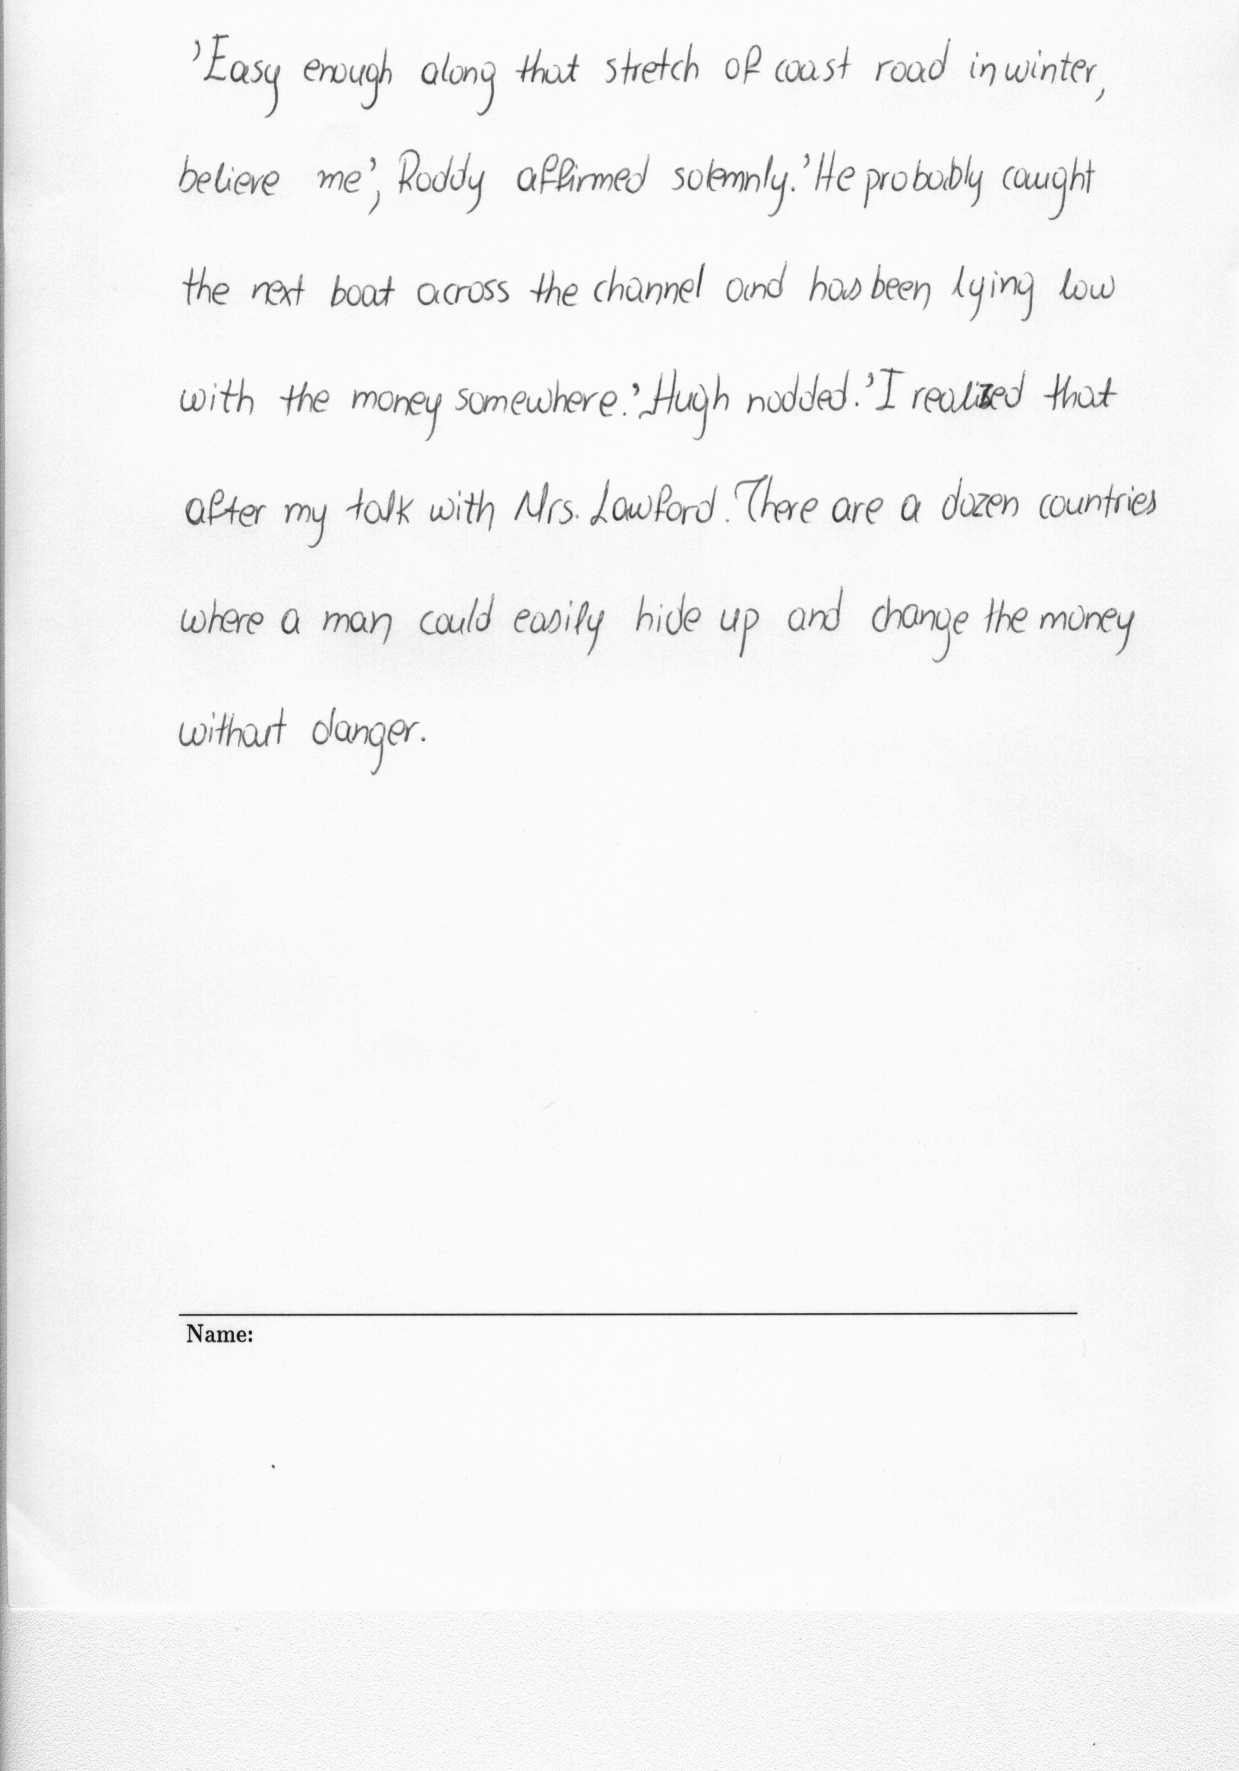 'Easy enough along that stretch of coast road in winter,
believe me', Roddy affirmed solemnly. 'He probably caught
the next boat across the channel and has been lying low
with the money somewhere.' Hugh nodded. 'I realized that
after my talk with Mrs. Lawford. There are a dozen countries
where a man could easily hide up and change the money
without danger.
Name: